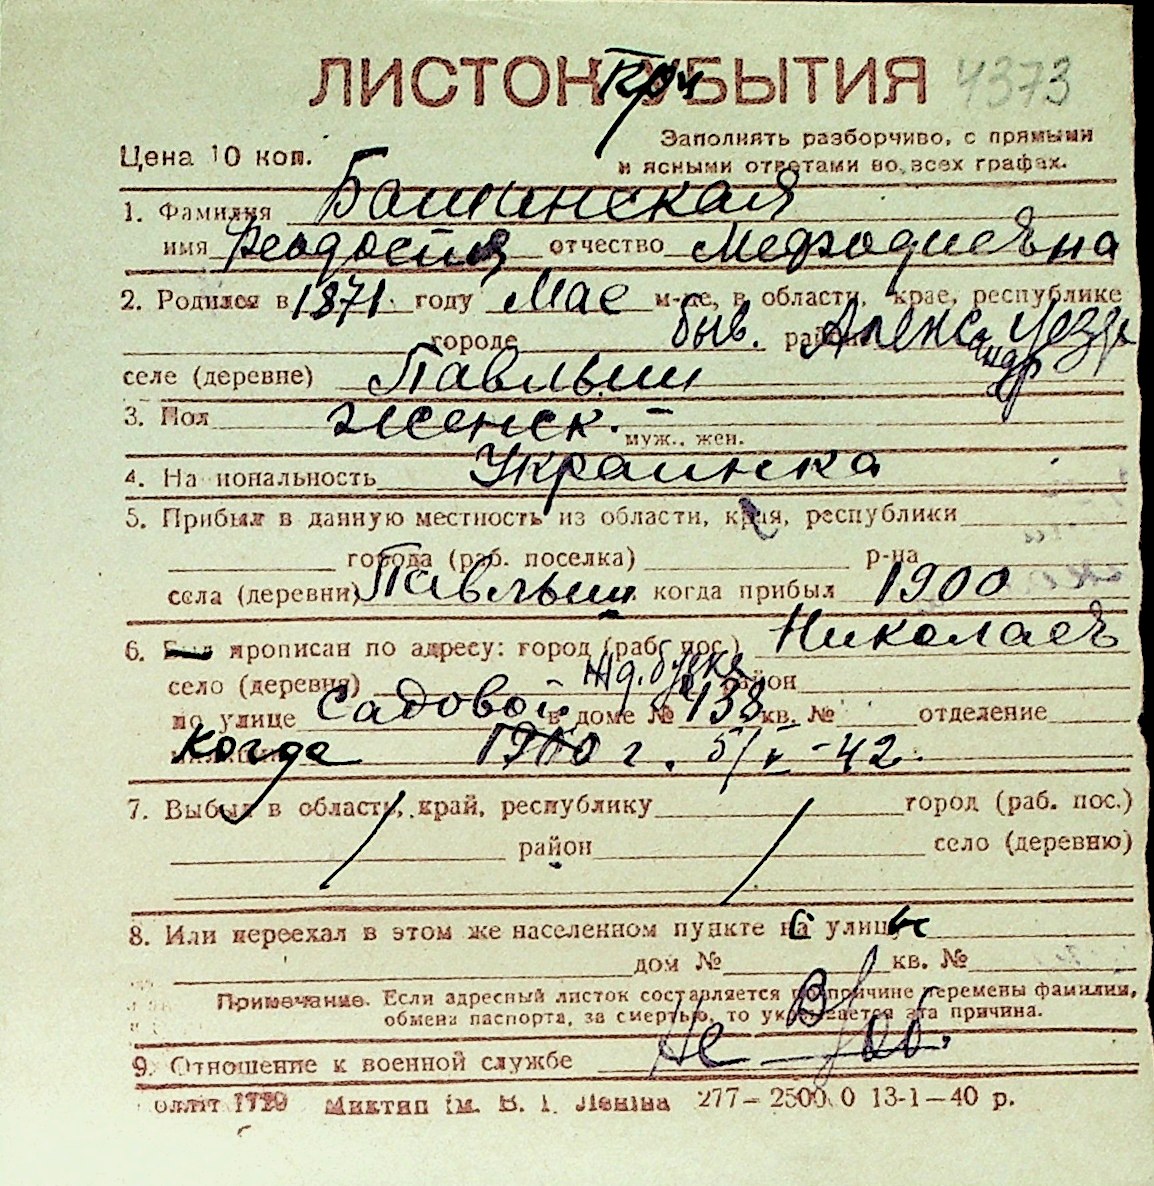 ЛИСТОК При УБЫТИЯ 4373
Заполнять разборчиво, с прямыми
Цена 10 коп. и ясными ответами во всех графах.
1. Фамилия Башинская
имя Феодосия отчество Мефодиевна
2. Родился в 1871 году Мае м-це, в области, крае, республике
городе быв. район Александр уезд
селе (деревне) Павлыш
3. Пол женск.
муж., жен.
4. Национальность Украинка
5. Прибыл в данную местность из области, края, республики
города (раб. поселка) р-на
села (деревни) Павлыш когда прибыл 1900
6. Был прописан по адресу: город (раб. пос.) Николаев
село (деревня) район
по улице Садовой в доме № 138 кв. № отделение
когда 1900 г. 5/V-42.
7. Выбыл в область, край, республику город (раб. пос.)
район село (деревню)
8. Или переехал в этом же населенном пункте с улицы
дом № кв. №
Примечание. Если адресный листок составляется по причине перемены фамилии,
обмена паспорта, за смертью, то указывается эта причина.
9. Отношение к военной службе Не в/об.
277—2500 0 13-1—40 р.